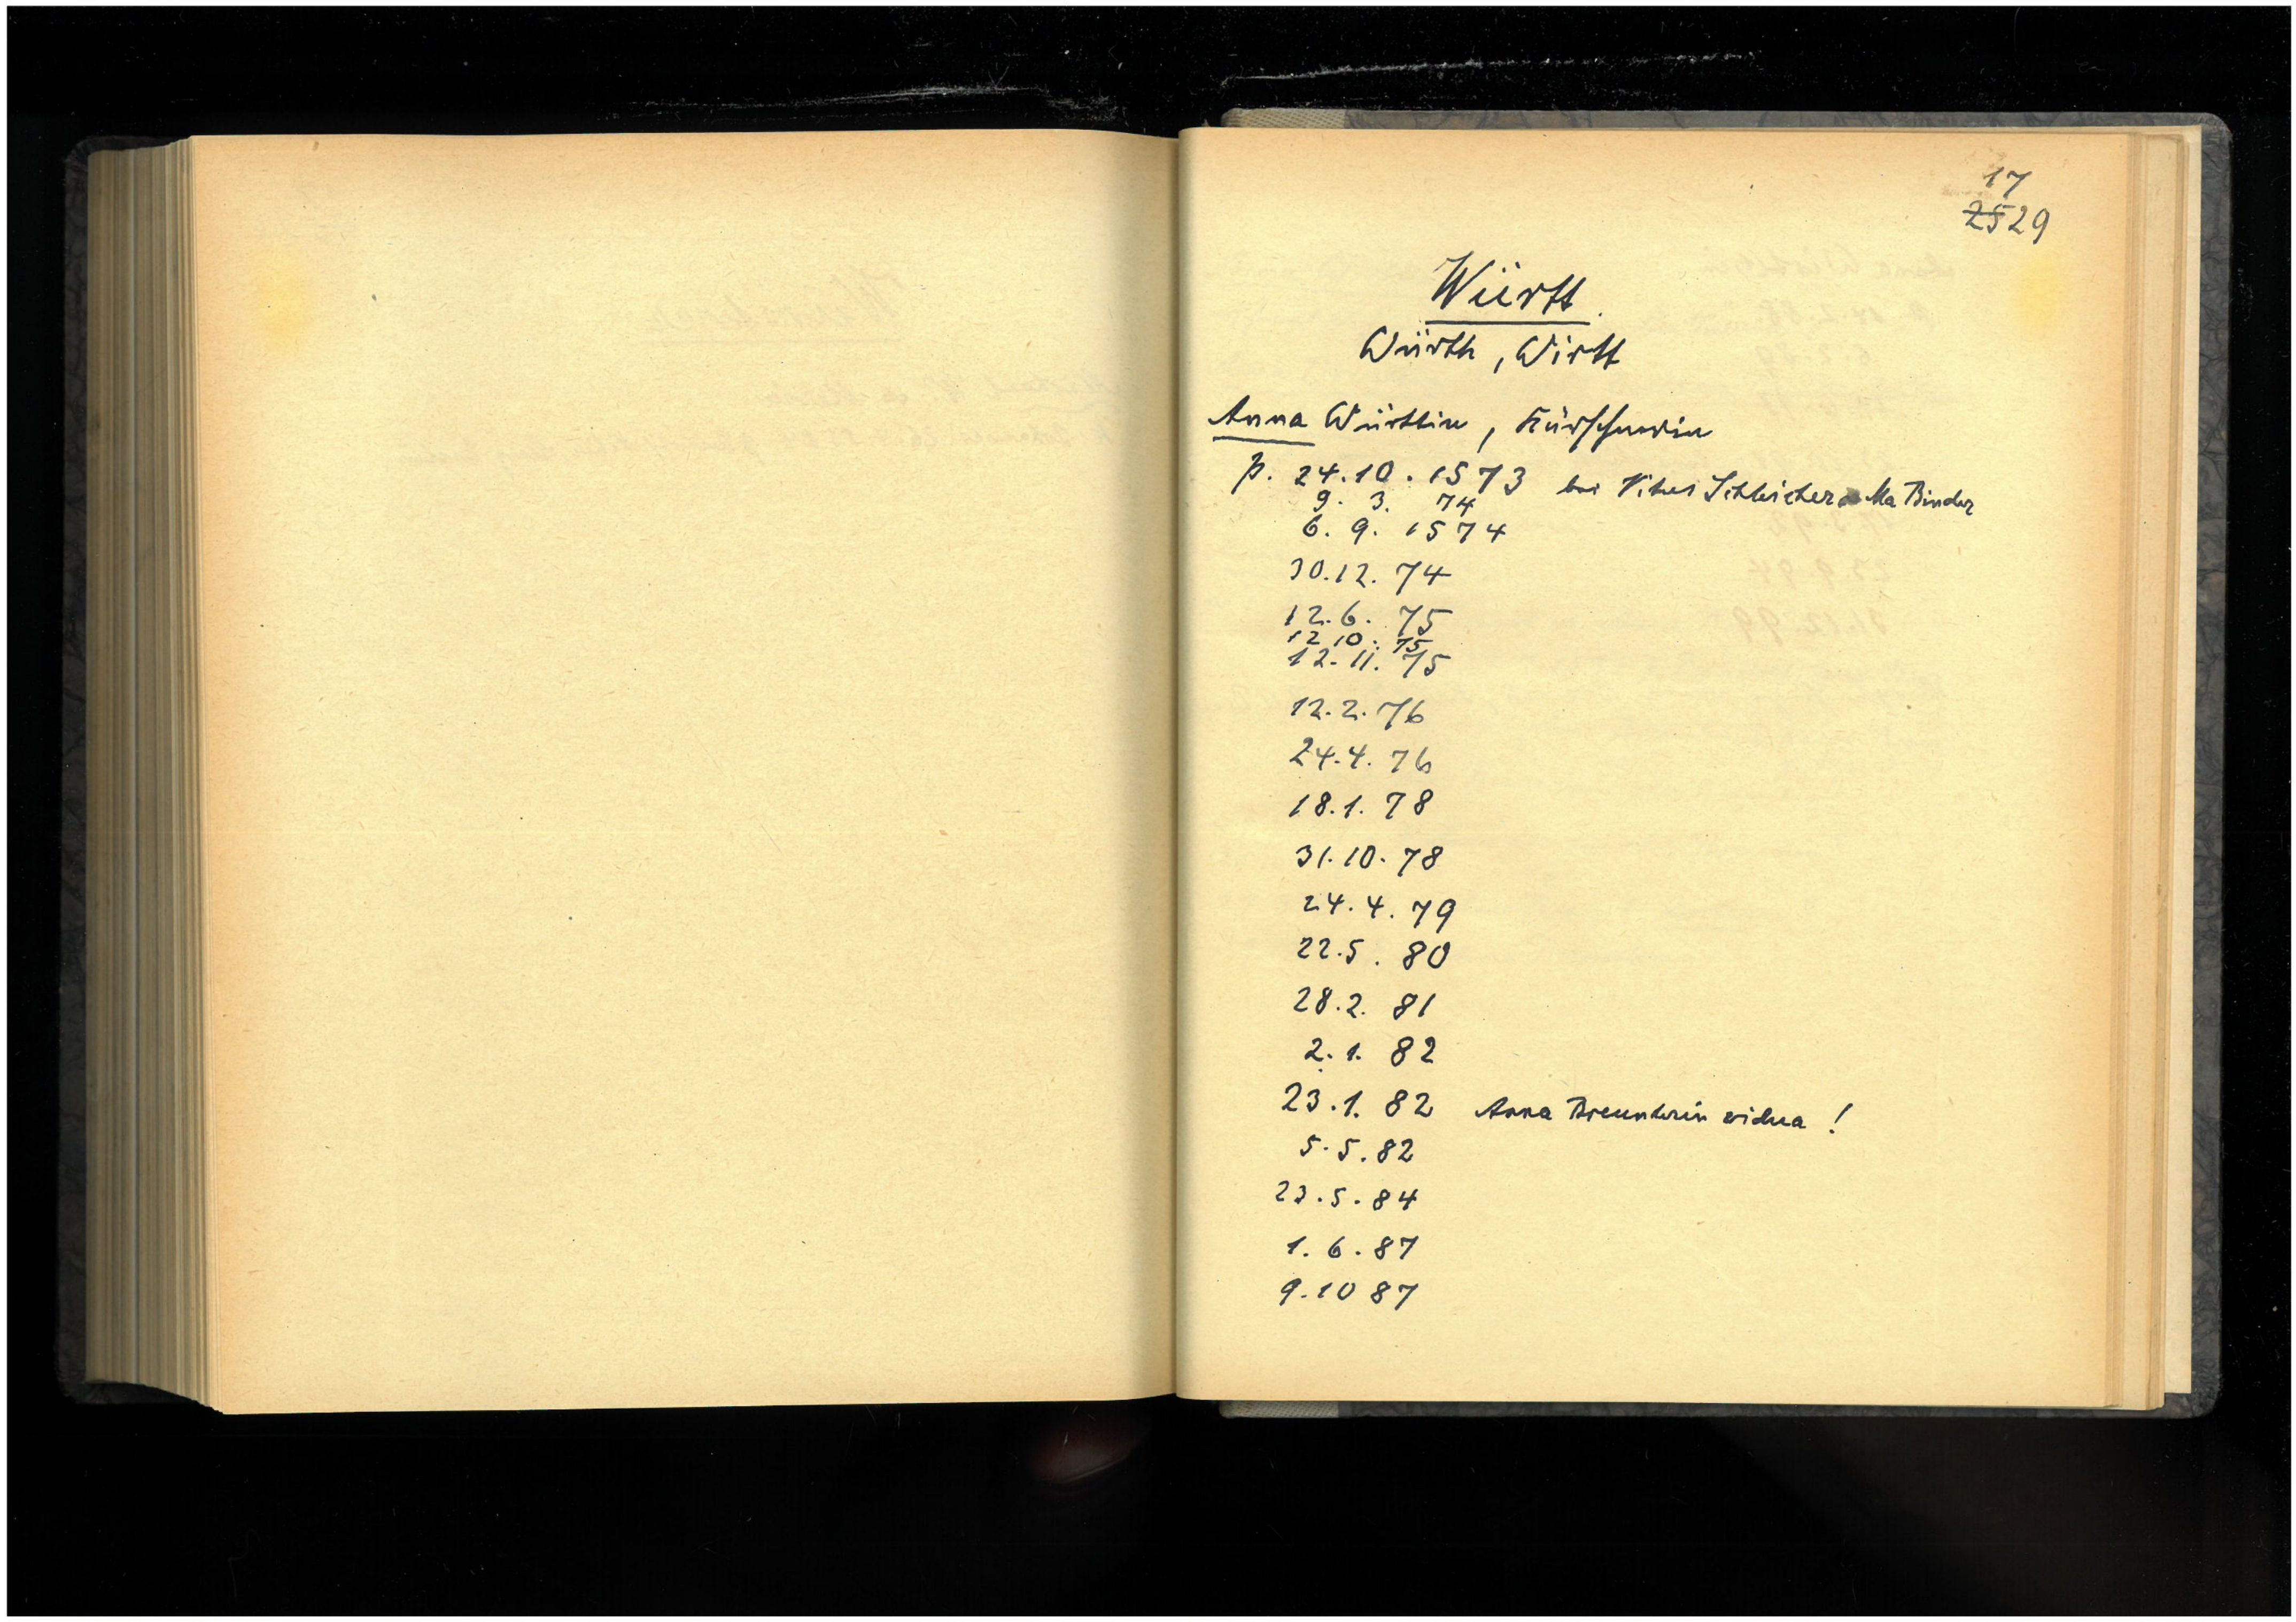 17
25 29
Württ
Würth, Wirtt
Anna Württin, Kürschnerin
p. 24.10.1573 bei Vitus Schleicher Ma Binder
9. 3. 74
6. 9. 1574
30.12. 74
12.6. 75
12 10. 75
12.11. 75
12.2.76
24.4. 76
18.1. 78
31.10.78
24.4.79
22.5. 80
28.2. 81
2.1. 82
23.1. 82 Anna vidua !
5.5.82
23.5.84
1.6.87
9.10 87